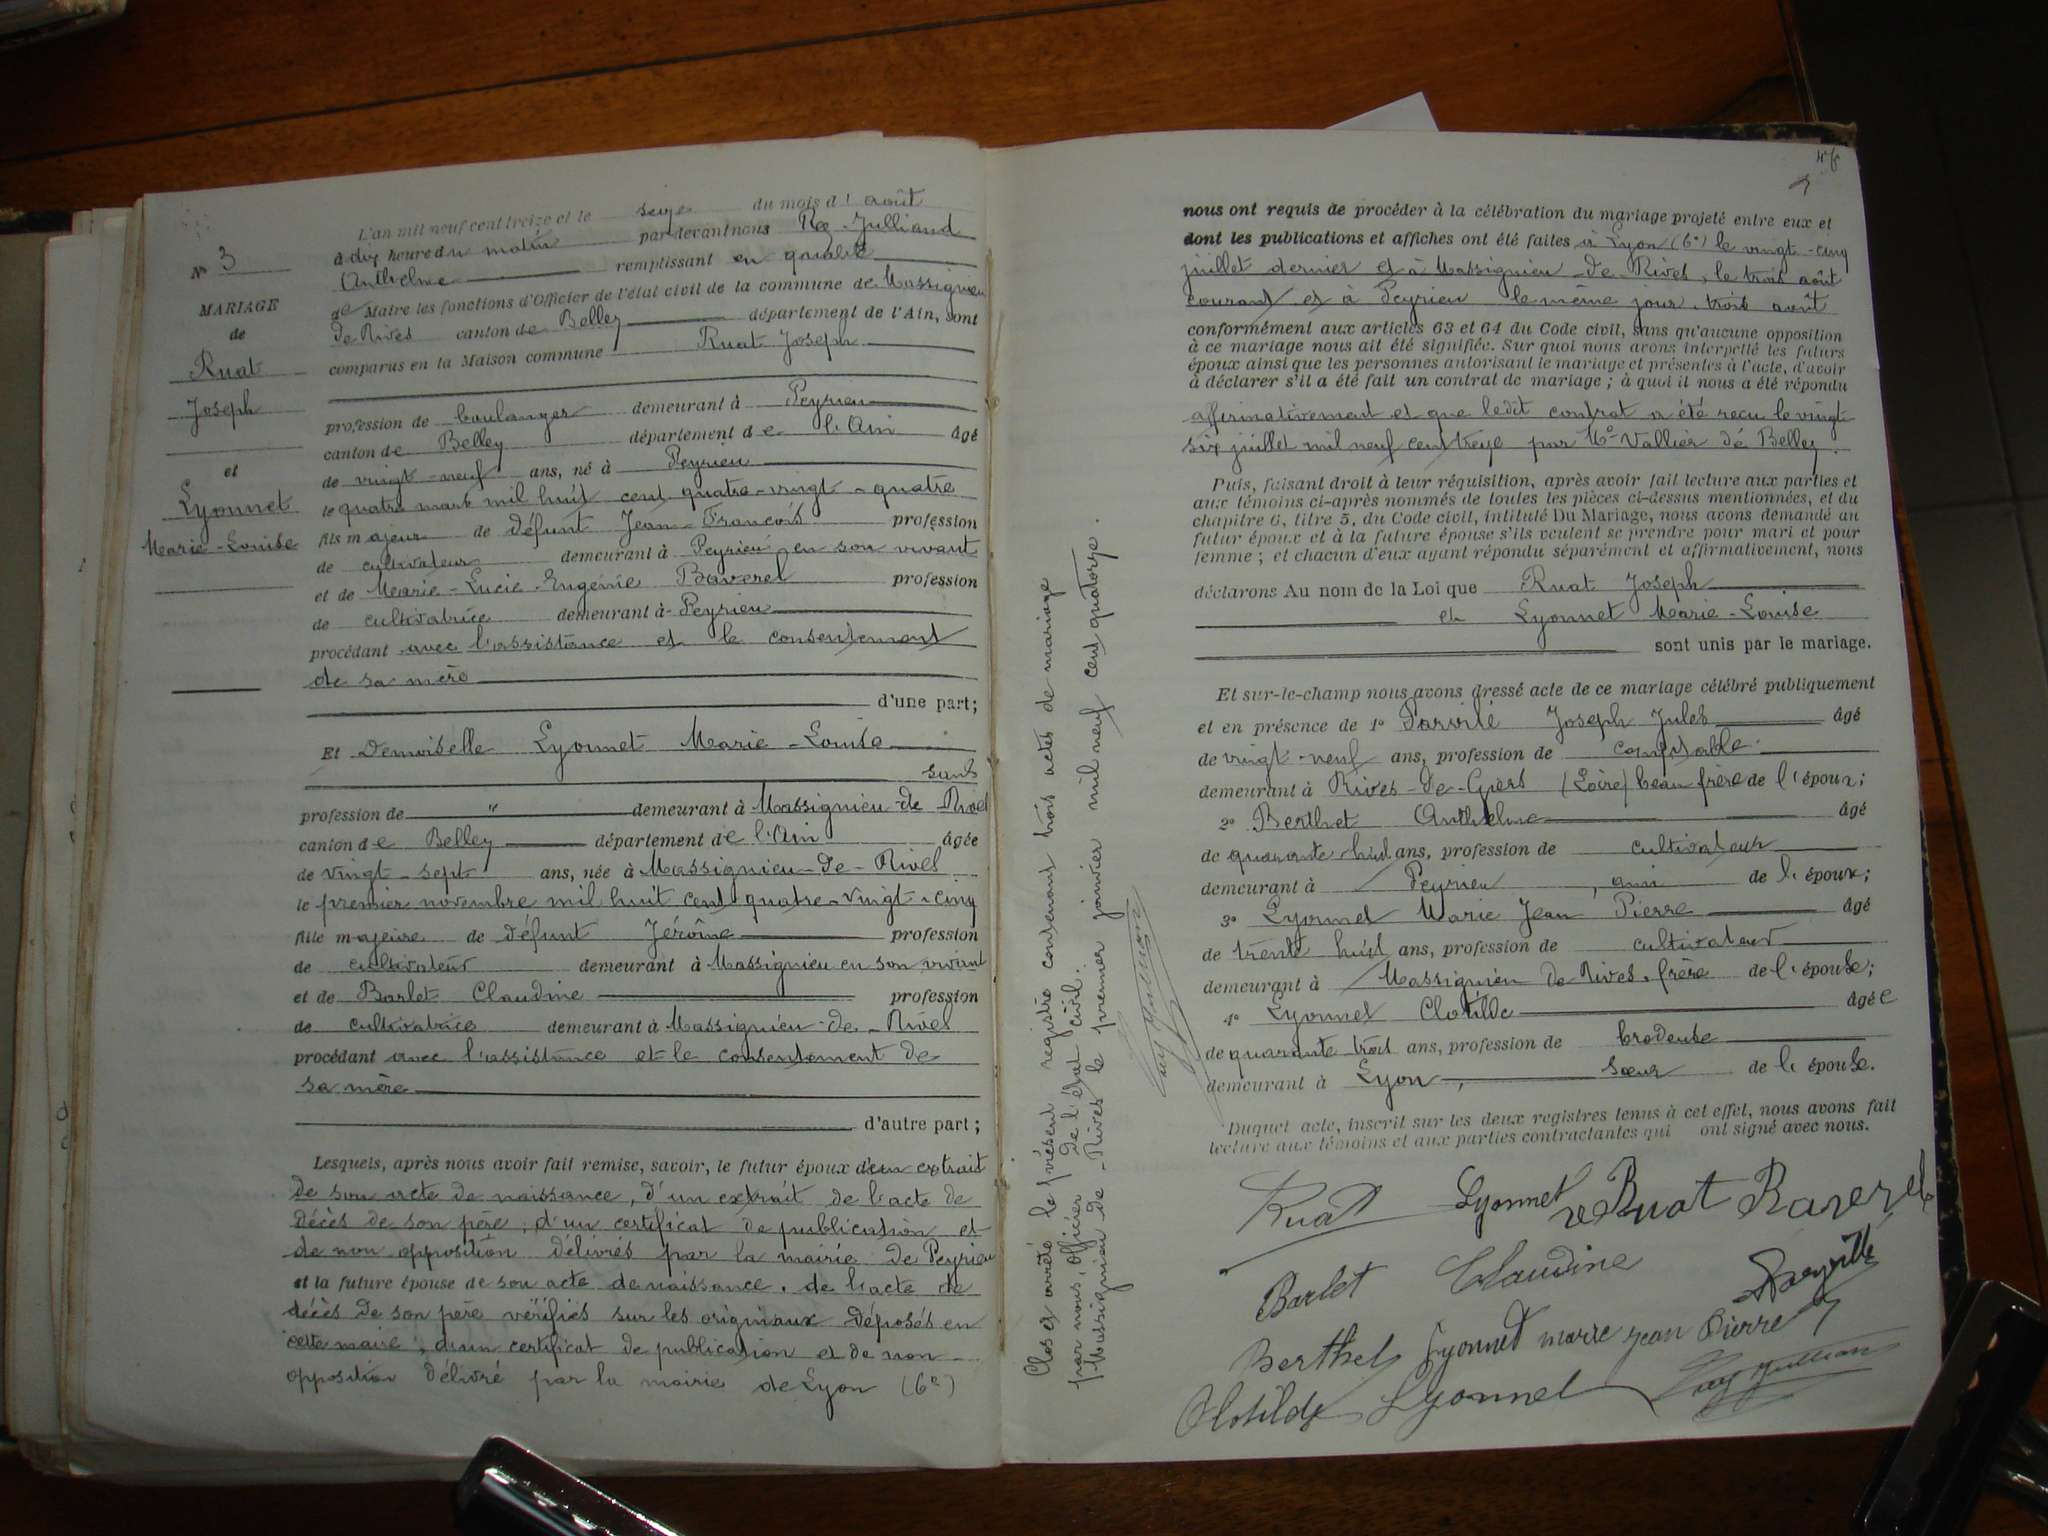 N° 3
MARIAGE
de
Ruat
Joseph
et
Lyonnet
Marie-Louise
L'an mil neuf cent treize et le seize du mois d' août
à dix heure du matin par devant nous Rey-Julliand
Anthelme remplissant en qualité
de Maire les fonctions d'Officier de l'état civil de la commune de Massignieu
de Rives canton de Belley département de l'Ain, sont
comparus en la Maison commune Ruat Joseph
profession de boulanger demeurant à Peyrieu
canton de Belley département de l'Ain âgé
de vingt-neuf ans, né à Peyrieu
le quatre mars mil huit cent quatre-vingt-quatre
fils majeur de défunt Jean-François profession
de cultivateur demeurant à Peyrieu en son vivant
et de Marie-Lucie-Eugénie Baverel profession
de cultivatrice demeurant à Peyrieu
procédant avec l'assistance et le consentement
de sa mère
d'une part;
Et Demoiselle Lyonnet Marie-Louise
sans
profession de " demeurant à Massignieu-de-Rives
canton de Belley département de l'Ain âgée
de vingt-sept ans, née à Massignieu-de-Rives
le premier novembre mil huit cent quatre-vingt-cinq
fille majeure de défunt Jérôme profession
de cultivateur demeurant à Massignieu en son vivant
et de Barlet Claudine profession
de cultivatrice demeurant à Massignieu-de-Rives
procédant avec l'assistance et le consentement de
sa mère
d'autre part;
Lesquels, après nous avoir fait remise, savoir, le futur époux d'un extrait
de son acte de naissance, d'un extrait de l'acte de
décès de son père, d'un certificat de publication et
de non opposition délivrés par la mairie de Peyrieu
et la future épouse de son acte de naissance, de l'acte de
décès de son père vérifiés sur les originaux déposés en
cette mairie, d'un certificat de publication et de non
opposition délivré par la mairie de Lyon (6e)
Clos et arrêté le présent registre contenant trois actes de mariage
par nous, Officier de l'État civil.
Massignieu-de-Rives le premier janvier mil neuf cent quatorze.
Rey Julliand
nous ont requis de procéder à la célébration du mariage projeté entre eux et
dont les publications et affiches ont été faites à Lyon (6e) le vingt-cinq
juillet dernier et à Massignieu-de-Rives, le trois août
courant et à Peyrieu le même jour, trois août
conformément aux articles 63 et 64 du Code civil, sans qu'aucune opposition
à ce mariage nous ait été signifiée. Sur quoi nous avons interpellé les futurs
époux ainsi que les personnes autorisant le mariage et présentes à l'acte, d'avoir
à déclarer s'il a été fait un contrat de mariage; à quoi il nous a été répondu
affirmativement et que ledit contrat a été reçu le vingt
six juillet mil neuf cent treize par Me Vallier de Belley.
Puis, faisant droit à leur réquisition, après avoir fait lecture aux parties et
aux témoins ci-après nommés de toutes les pièces ci-dessus mentionnées, et du
chapitre 6, titre 5, du Code civil, intitulé Du Mariage, nous avons demandé au
futur époux et à la future épouse s'ils veulent se prendre pour mari et pour
femme; et chacun d'eux ayant répondu séparément et affirmativement, nous
déclarons Au nom de la Loi que Ruat Joseph
et Lyonnet Marie-Louise
sont unis par le mariage.
Et sur-le-champ nous avons dressé acte de ce mariage célébré publiquement
et en présence de 1° Joseph Jules âgé
de vingt-neuf ans, profession de comptable
demeurant à Rives-de-Giers (Loire) beau frère de l'époux;
2° Berthet Anthelme âgé
de quarante-huit ans, profession de cultivateur
demeurant à Peyrieu, ami de l'époux;
3° Lyonnet Marie Jean Pierre âgé
de trente huit ans, profession de cultivateur
demeurant à Massignieu de Rives, frère de l'épouse;
4° Lyonnet Clotilde âgée
de quarante trois ans, profession de brodeuse
demeurant à Lyon, sœur de l'épouse.
Duquel acte, inscrit sur les deux registres tenus à cet effet, nous avons fait
lecture aux témoins et aux parties contractantes qui ont signé avec nous.
Ruat Lyonnet ve Ruat Baverel
Barlet Claudine
Berthet Lyonnet marie jean Pierre
Clotilde Lyonnet Rey Julliand